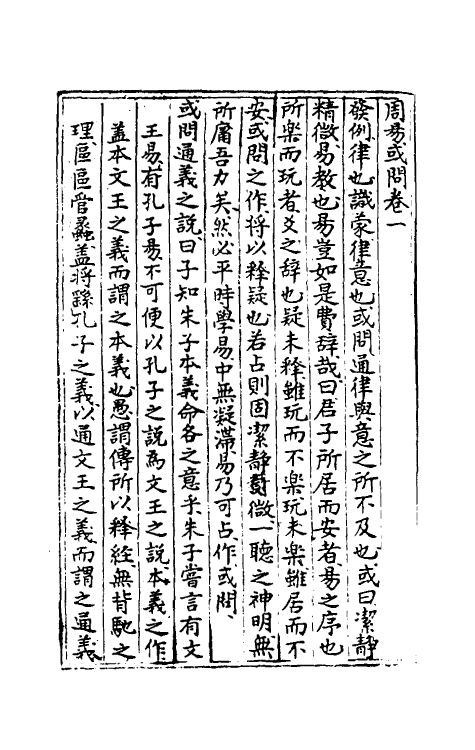 周易或問卷一
發例律也識蒙律意也或問通律與意之所不及也或曰潔靜
精微易教也易豈如是費辞哉曰君子所居而安者易之序也
所樂而玩者爻之辞也疑未释雖玩而不樂玩未樂雖居而不
安或問之作将以释疑也若占則固潔靜微一聴之神明無
所庸吾力矣然必平時學易中無凝滞易乃可占作或問
或問通義之説曰子知朱子本義命名之意乎朱子嘗言有文
王易有孔子易不可便以孔子之説為文王之説本義之作
盖本文王之義而謂之本義也愚謂傳所以释経無背馳之
理區區管蠡盖将繇孔子之義以通文王之義而謂之通義